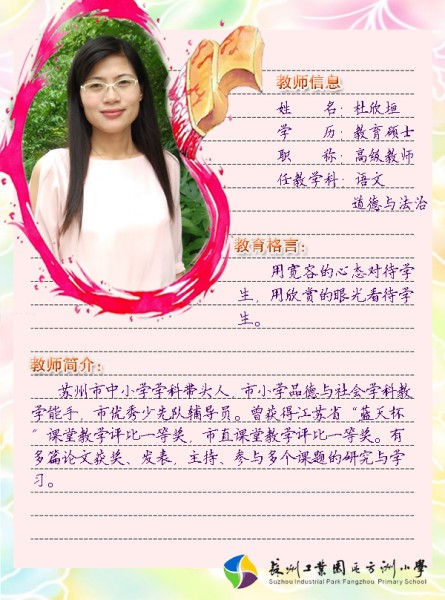 教师信息
姓 名：杜欣垣
学 历：教育硕士
职 称：高级教师
任教学科：语文
道德与法治
教育格言：
用宽容的心态对待学
生，用欣赏的眼光看待学
生。
教师简介：
苏州市中小学学科带头人，市小学品德与社会学科教
学能手，市优秀少先队辅导员。曾获得江苏省“蓝天杯
”课堂教学评比一等奖，市直课堂教学评比一等奖。有
多篇论文获奖、发表，主持、参与多个课题的研究与学
习。
苏州工业园区方洲小学
Suzhou Industrial Park Fangzhou Primary School